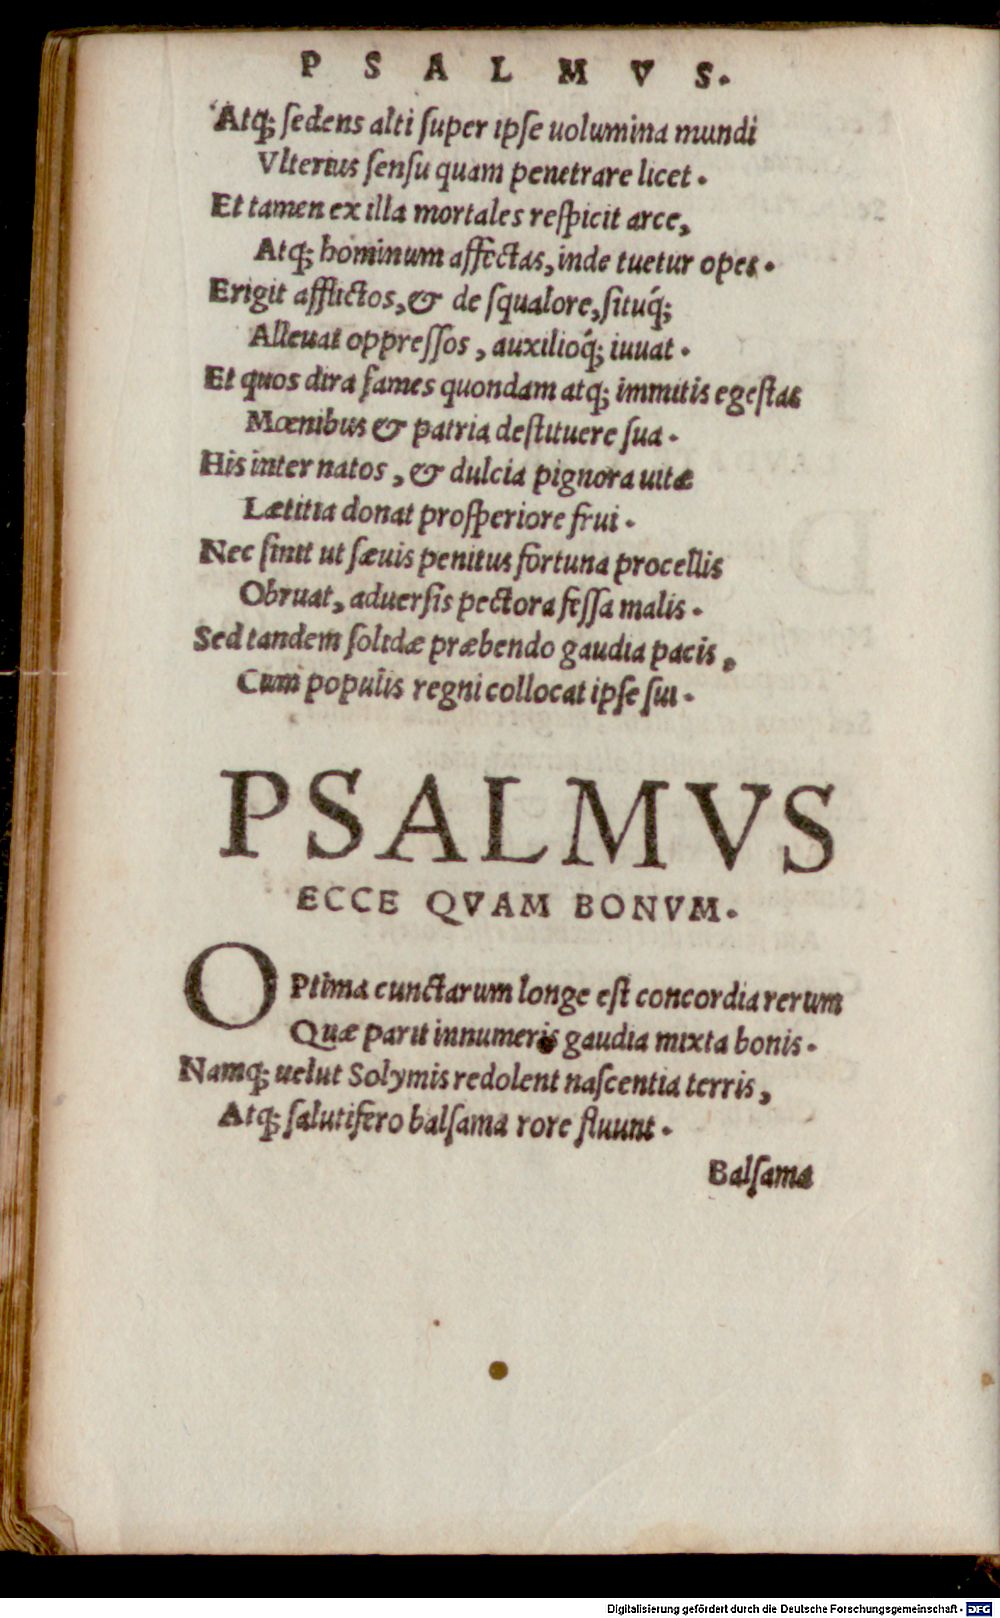 P S A L M V S.
Atq; ſedens alti ſuper ipſe uolumina mundi
Vlterius ſenſu quam penetrare licet.
Et tamen ex illa mortales reſpicit arce,
Atq; hominum affectas, inde tuetur opes.
Erigit afflictos, & de ſqualore, ſituq́;
Alleuat oppreſſos, auxilioq́; iuuat.
Et quos dira fames quondam atq; immitis egeſtas
Mœnibus & patria deſtituere ſua.
His inter natos, & dulcia pignora uitæ
Lætitia donat proſperiore frui.
Nec ſinit ut ſæuis penitus fortuna procellis
Obruat, aduerſis pectora feſſa malis.
Sed tandem ſolidæ præbendo gaudia pacis,
Cum populis regni collocat ipſe ſui.
PSALMVS
ECCE QVAM BONVM.
OPtima cunctarum longe eſt concordia rerum
Quæ parit innumeris gaudia mixta bonis.
Namq; uelut Solymis redolent naſcentia terris,
Atq; ſalutifero balſama rore fluunt.
Balſama
Digitalisierung gefördert durch die Deutsche Forschungsgemeinschaft - DFG